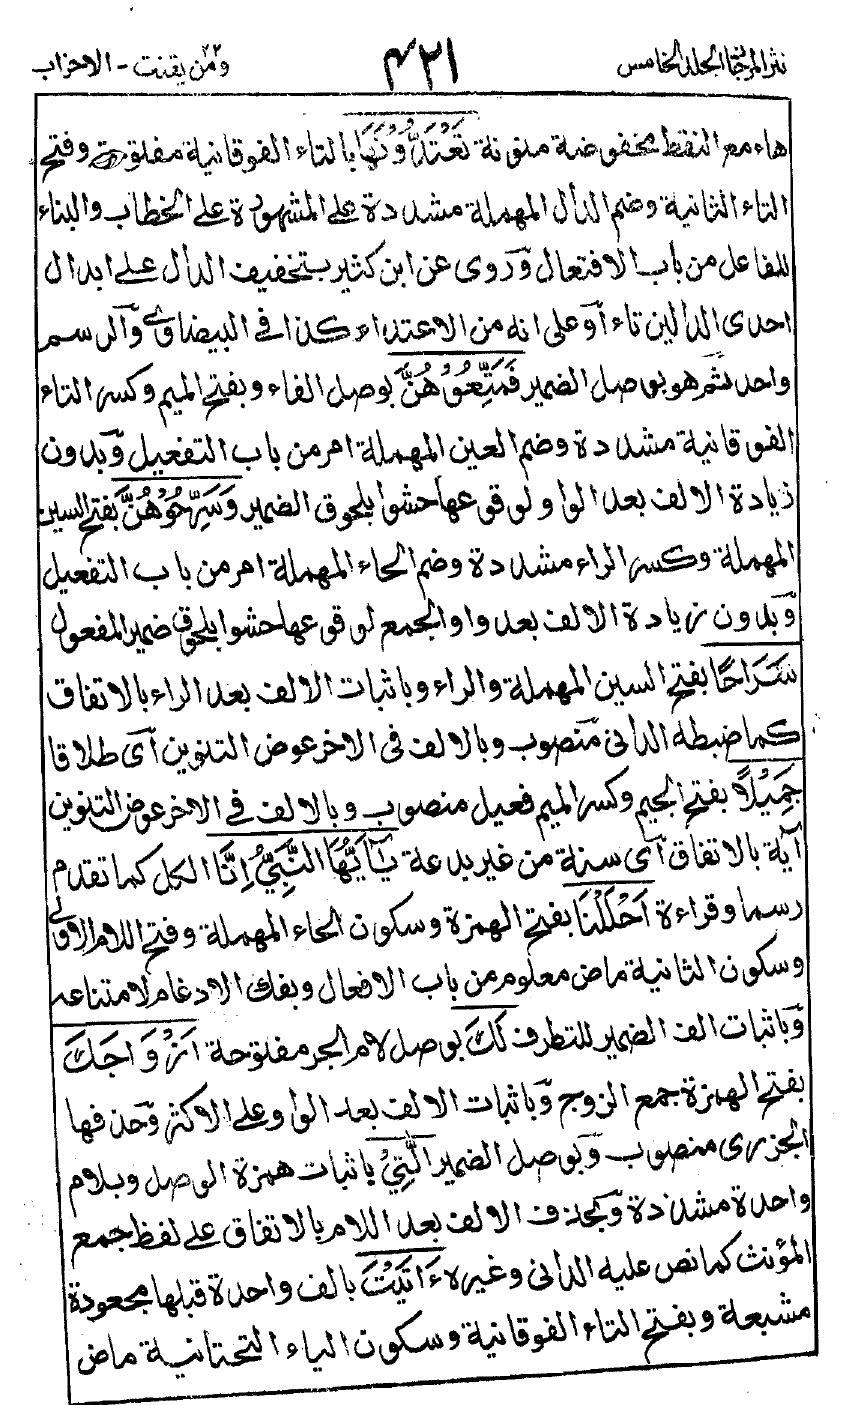 نثر المرجان الجلد الخامس ٤٢١ ومن يقنت ٢٢ - الاحزاب
هاء مع النقط مخفوضة منونة تَعْتَدُّوْنَهَا بالتاء الفوقانية مفتوحة وفتح
التاء الثانية وضم الدال المهملة مشددة على المشهورة على الخطاب والبناء
للفاعل من باب الافتعال وروى عن ابن كثير بتخفيف الدال على ابدال
احدى الدالين تاء او على انه من الاعتداء كذا في البيضاوي والرسم
واحد ثم هو بوصل الضمير فَمَتِّعُوْهُنَّ بوصل الفاء وبفتح الميم وكسر التاء
الفوقانية مشددة وضم العين المهملة امر من باب التفعيل وبدون
زيادة الالف بعد الواو لوقوعها حشوا بلحوق الضمير وَسَرِّحُوْهُنَّ بفتح السين
المهملة وكسر الراء مشددة وضم الحاء المهملة امر من باب التفعيل
وبدون زيادة الالف بعد واو الجمع لوقوعها حشوا بلحوق ضمير المفعول
سَرَاحًا بفتح السين المهملة والراء وباثبات الالف بعد الراء بالاتفاق
كما ضبطه الدانى منصوب وبالالف فى الاخر عوض التنوين اى طلاقا
جَمِيْلًا بفتح الجيم وكسر الميم فعيل منصوب وبالالف في الاخر عوض التنوين
آية بالاتفاق اى سنة من غير بدعة يٰۤاَيُّهَا النَّبِيُّ اِنَّا الكل كما تقدم
رسما وقراءة اَحْلَلْنَا بفتح الهمزة وسكون الحاء المهملة وفتح اللام الاولى
وسكون الثانية ماض معلوم من باب الافعال وبفك الادغام لامتناعه
وباثبات الف الضمير للتطرف لَكَ بوصل لام الجر مفتوحة اَزْوَاجَكَ
بفتح الهمزة جمع الزوج وباثبات الالف بعد الواو على الاكثر وحذفها
الجزرى منصوب وبوصل الضمير الّٰتِيْ باثبات همزة الوصل وبلام
واحدة مشددة وبحذف الالف بعد اللام بالاتفاق على لفظ جمع
المؤنث كما نص عليه الدانى وغيره ءَاتَيْتَ بالف واحدة قبلها مجعودة
مشبعة وبفتح التاء الفوقانية وسكون الياء التحتانية ماض